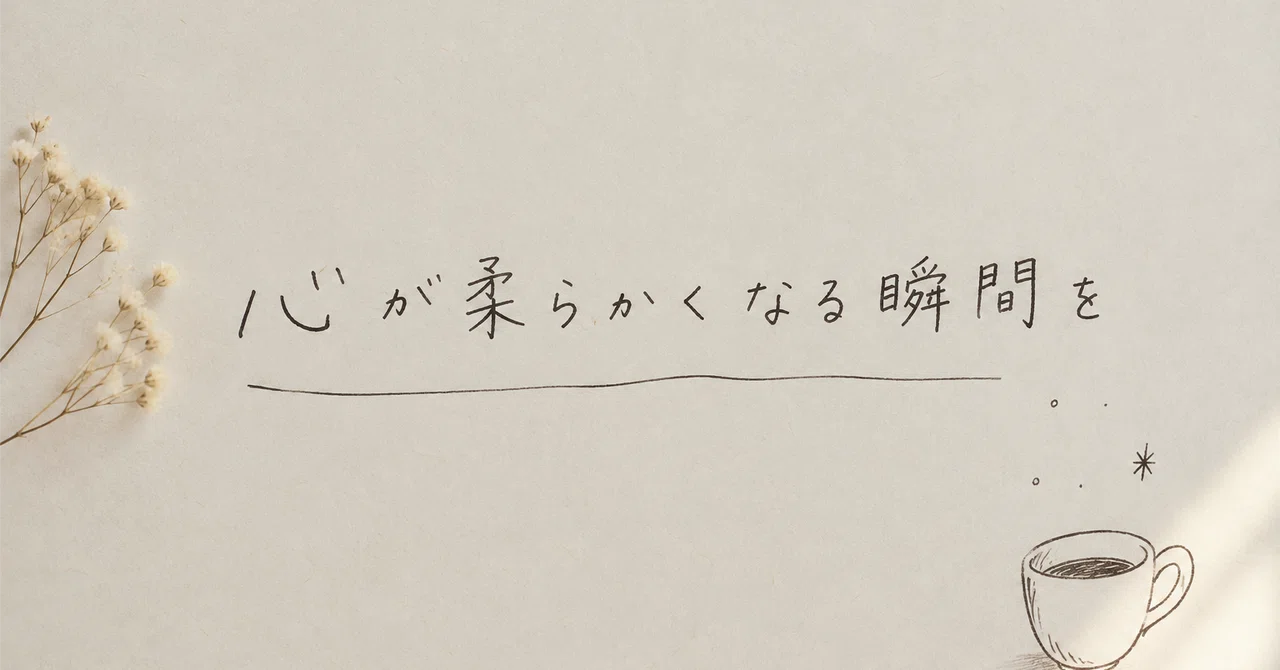 心が柔らかくなる瞬間を